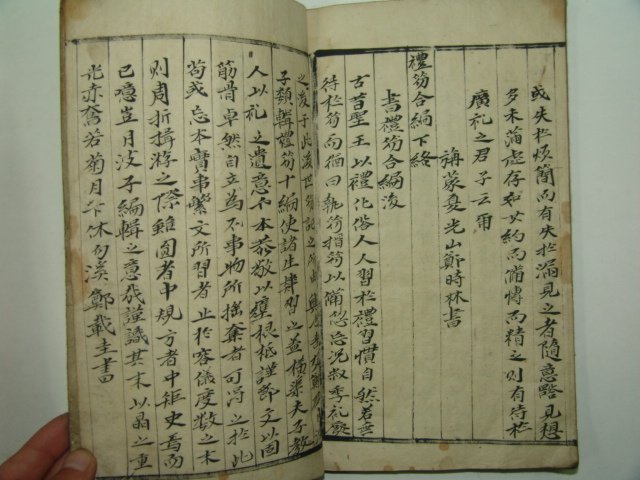 或失於煩簡而有失於漏見之者隨意點見想
多未蒲虛存如以約而備博而精之則有待於
廣礼之君子云爾
旃蒙夏光山鄭時林書
禮笏合編下終
書禮笏合編後
古昔聖王以禮化俗人人習於禮習慣自然若無
待於笏而猶曰執笏搢笏以備忽忘况叔季礼廢
之後乎此
子類輯禮笏十編使諸生肄習之益橫渠夫子教
人以礼之遺意不本恭敬以壅根柢謹節文以固
筋骨卓然自立爲不事物所搖奪者可得之於此
苟或忘本實事繁文所習者止於容儀度數之末
則周折揖游之際雖圓者中規方者中矩史焉而
已噫豈月波子編輯之意哉謹識其末以晶之重
光赤奮若菊月下休勿溪鄭載圭書